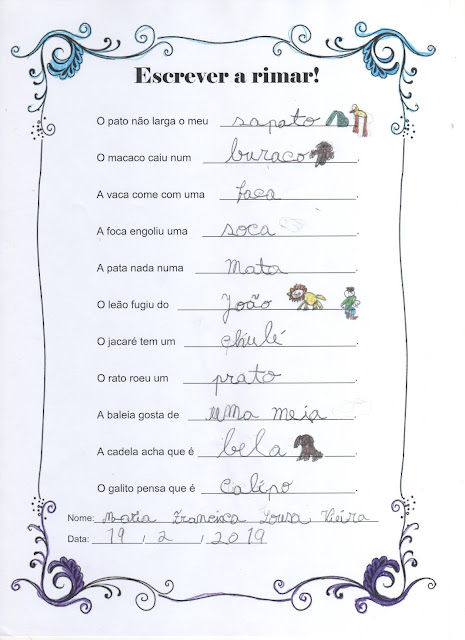 Escrever a rimar!
O pato não larga o meu sapato.
O macaco caiu num buraco.
A vaca come com uma faca.
A foca engoliu uma soca.
A pata nada numa Mata.
O leão fugiu do João.
O jacaré tem um chulé.
O rato roeu um prato.
A baleia gosta de uma meia.
A cadela acha que é bela.
O galito pensa que é Calipo.
Nome: Maria Francisca Lousa Vieira
Data: 19 / 2 / 2019